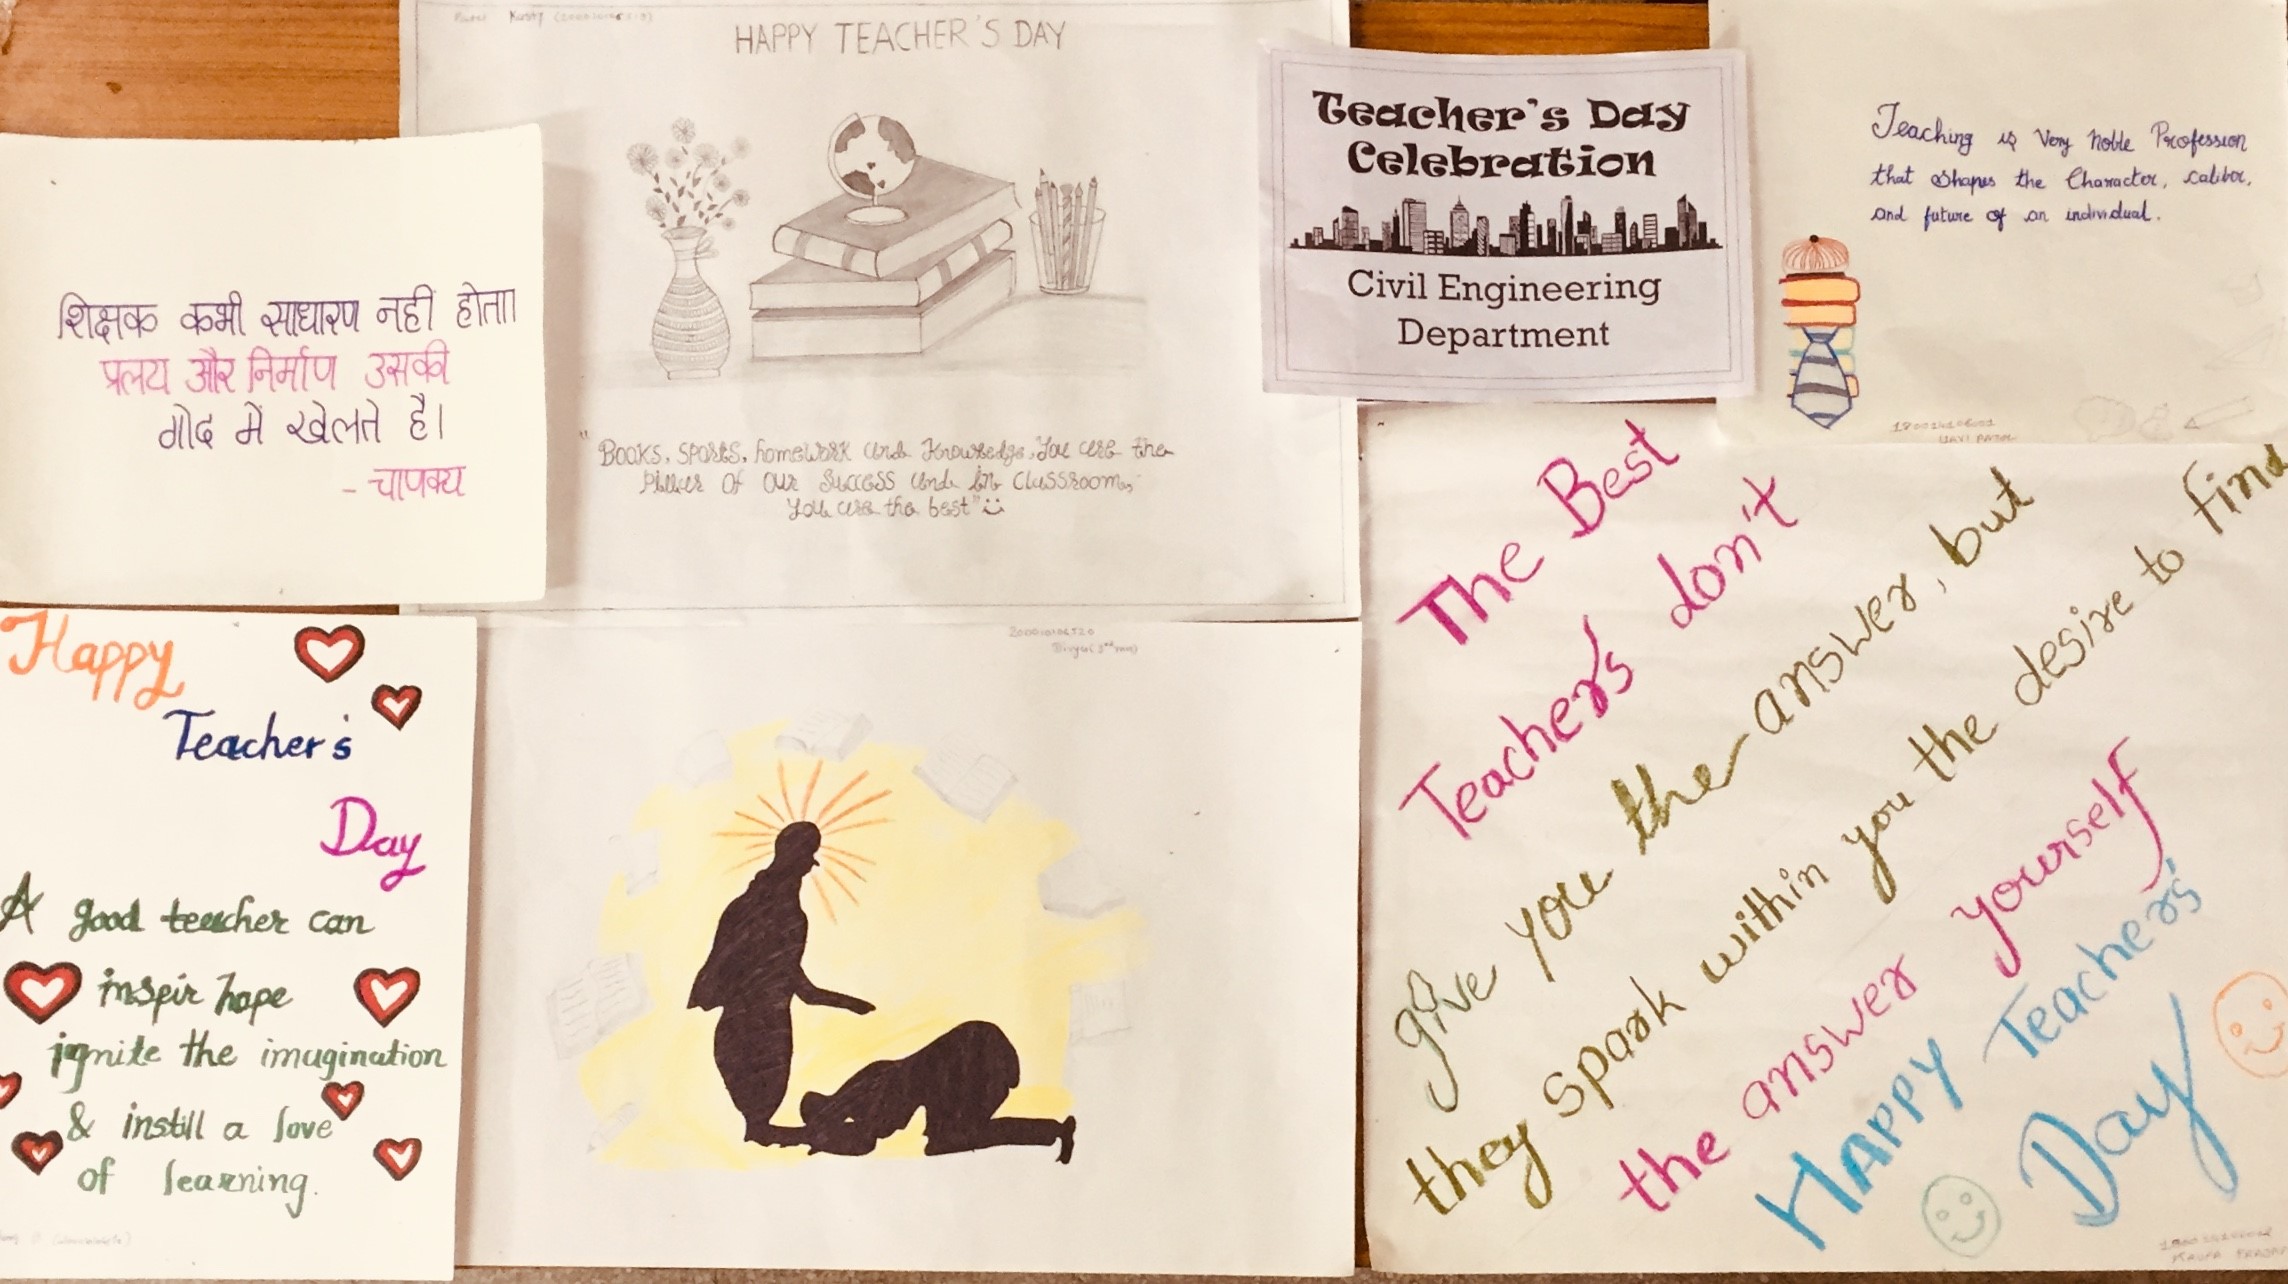 HAPPY TEACHER'S DAY
"Books, sports, homework and knowledge, You are the
Piller of our success and in classrooms,
You are the best"
Teacher's Day
Celebration
Civil Engineering
Department
Teaching is Very Noble Profession
that shapes the Character, caliber,
and future of an individual.
शिक्षक कभी साधारण नहीं होता।
प्रलय और निर्माण उसकी
गोद में खेलते है।
- चाणक्य
Happy
Teacher's
Day
A good teacher can
inspir hope
ignite the imagination
& instill a love
of learning.
The Best
Teachers don't
give you the answer, but
they spark within you the desire to find
the answer yourself
Happy Teachers'
Day